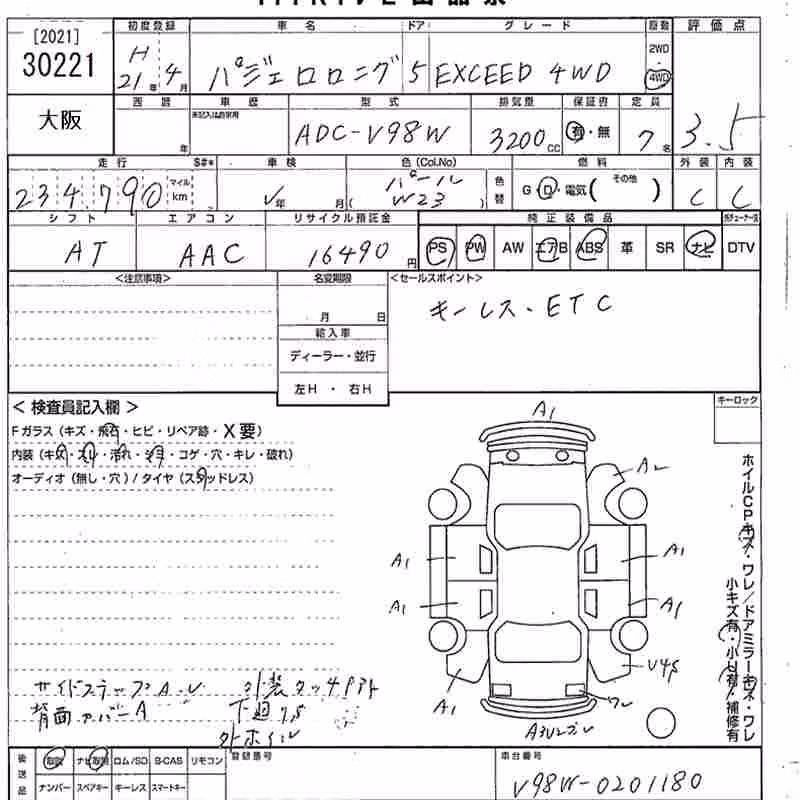 [2021]
30221
大阪
初度登録 車名 ドア グレード 駆動 評価点
H21年4月 パジェロロング 5 EXCEED 4WD 2WD・4WD 3.5
西暦 車歴 型式 排気量 保証書 定員
年 未記入は自家用 ADC-V98W 3200CC 有・無 7名
走行 S#* 車検 色(Col.No) 燃料 外装 内装
234,790 マイル km 年 月 ( パール W23 ) 色替 G・D・電気( その他 ) C C
シフト エアコン リサイクル預託金 純正装備品
AT AAC 16490円 PS PW AW エアB ABS 革 SR ナビ DTV
<注意事項> 名変期限 <セールスポイント>
月 日 キーレス・ETC
輸入車
ディーラー・並行
左H・右H
<検査員記入欄> キーロック
Fガラス(キズ・飛石・ヒビ・リペア跡・X要)
内装(キズ・スレ・汚れ・シミ・コゲ・穴・キレ・破れ)
オーディオ(無し・穴)/タイヤ(スタッドレス)
A1
A2
A1 A1
A1 A1
A1 V4S
ワレ
ホイルCPキズ・ワレ/ドアミラーキズ・ワレ
小キズ有・小U有・補修有
サイドステップA.U 外装タッチアト
背面カバーA 下廻りS
外ホイル
後送品 取説 ナビ取説 ロム/SD B-CAS リモコン 登録番号 車台番号
ナンバー スペアキー キーレス スマートキー V98W-0201180